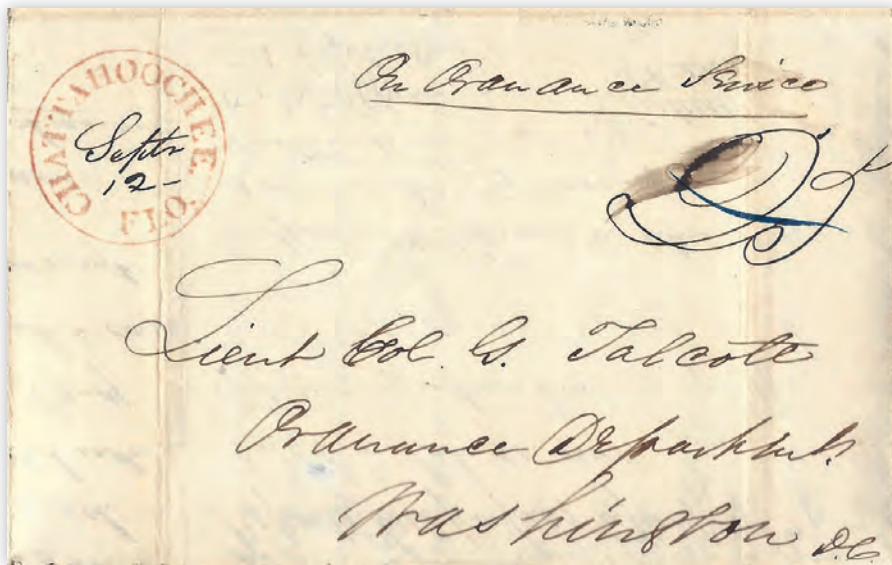 CHATTAHOOCHEE. FLO.
Septr
12-
On Ordnance Service
Lieut Col. G. Talcott
Ordnance Departmt.
Washington D.C.